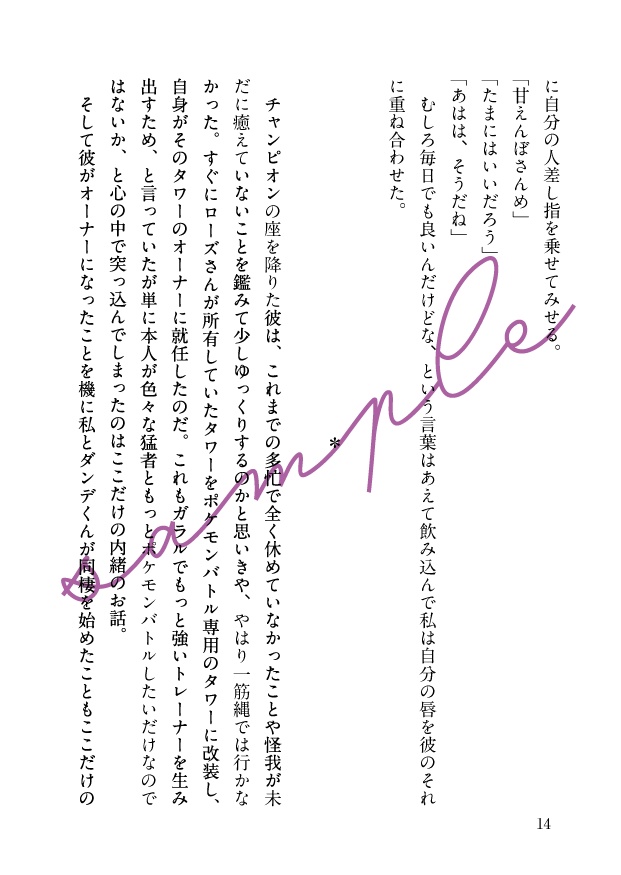 に自分の人差し指を乗せてみせる。
「甘えんぼさんめ」
「たまにはいいだろう」
「あはは、そうだね」
むしろ毎日でも良いんだけどな、という言葉はあえて飲み込んで私は自分の唇を彼のそれ
に重ね合わせた。
*
チャンピオンの座を降りた彼は、これまでの多忙で全く休めていなかったことや怪我が未
だに癒えていないことを鑑みて少しゆっくりするのかと思いきや、やはり一筋縄では行かな
かった。すぐにローズさんが所有していたタワーをポケモンバトル専用のタワーに改装し、
自身がそのタワーのオーナーに就任したのだ。これもガラルでもっと強いトレーナーを生み
出すため、と言っていたが単に本人が色々な猛者ともっとポケモンバトルしたいだけなので
はないか、と心の中で突っ込んでしまったのはここだけの内緒のお話。
そして彼がオーナーになったことを機に私とダンデくんが同棲を始めたこともここだけの
14
sample